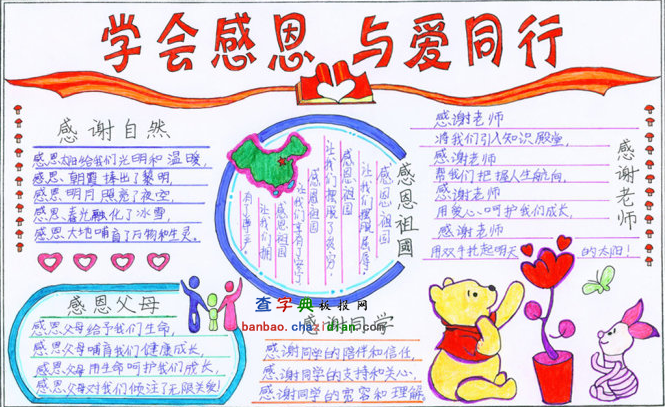 学会感恩 与爱同行
感谢自然
感恩 给我们光明和温暖,
感恩 朝霞 捧出了黎明,
感恩 明月 照亮了夜空,
感恩 春光融化了冰雪,
感恩大地哺育了万物和生灵。
感恩祖國
感恩祖国
让我们摆脱屈辱,
感恩祖国
让我们摆脱了贫穷,
感恩祖国
让我们享有了
感恩祖国
让我们拥
感谢老师
感谢老师
将我们引入知识殿堂,
感谢老师
帮我们把握人生航向,
感谢老师
用爱心呵护我们成长,
感谢老师
用双手托起明天 的太阳!
感恩父母
感恩父母给予我们生命,
感恩父母哺育我们健康成长,
感恩父母用生命呵护我们成长,
感恩父母对我们倾注了无限关爱!
查字典板报网
banbao.chazidian.com
感谢同学
感谢同学的陪伴和信任,
感谢同学的支持和关心,
感谢同学的宽容和理解。